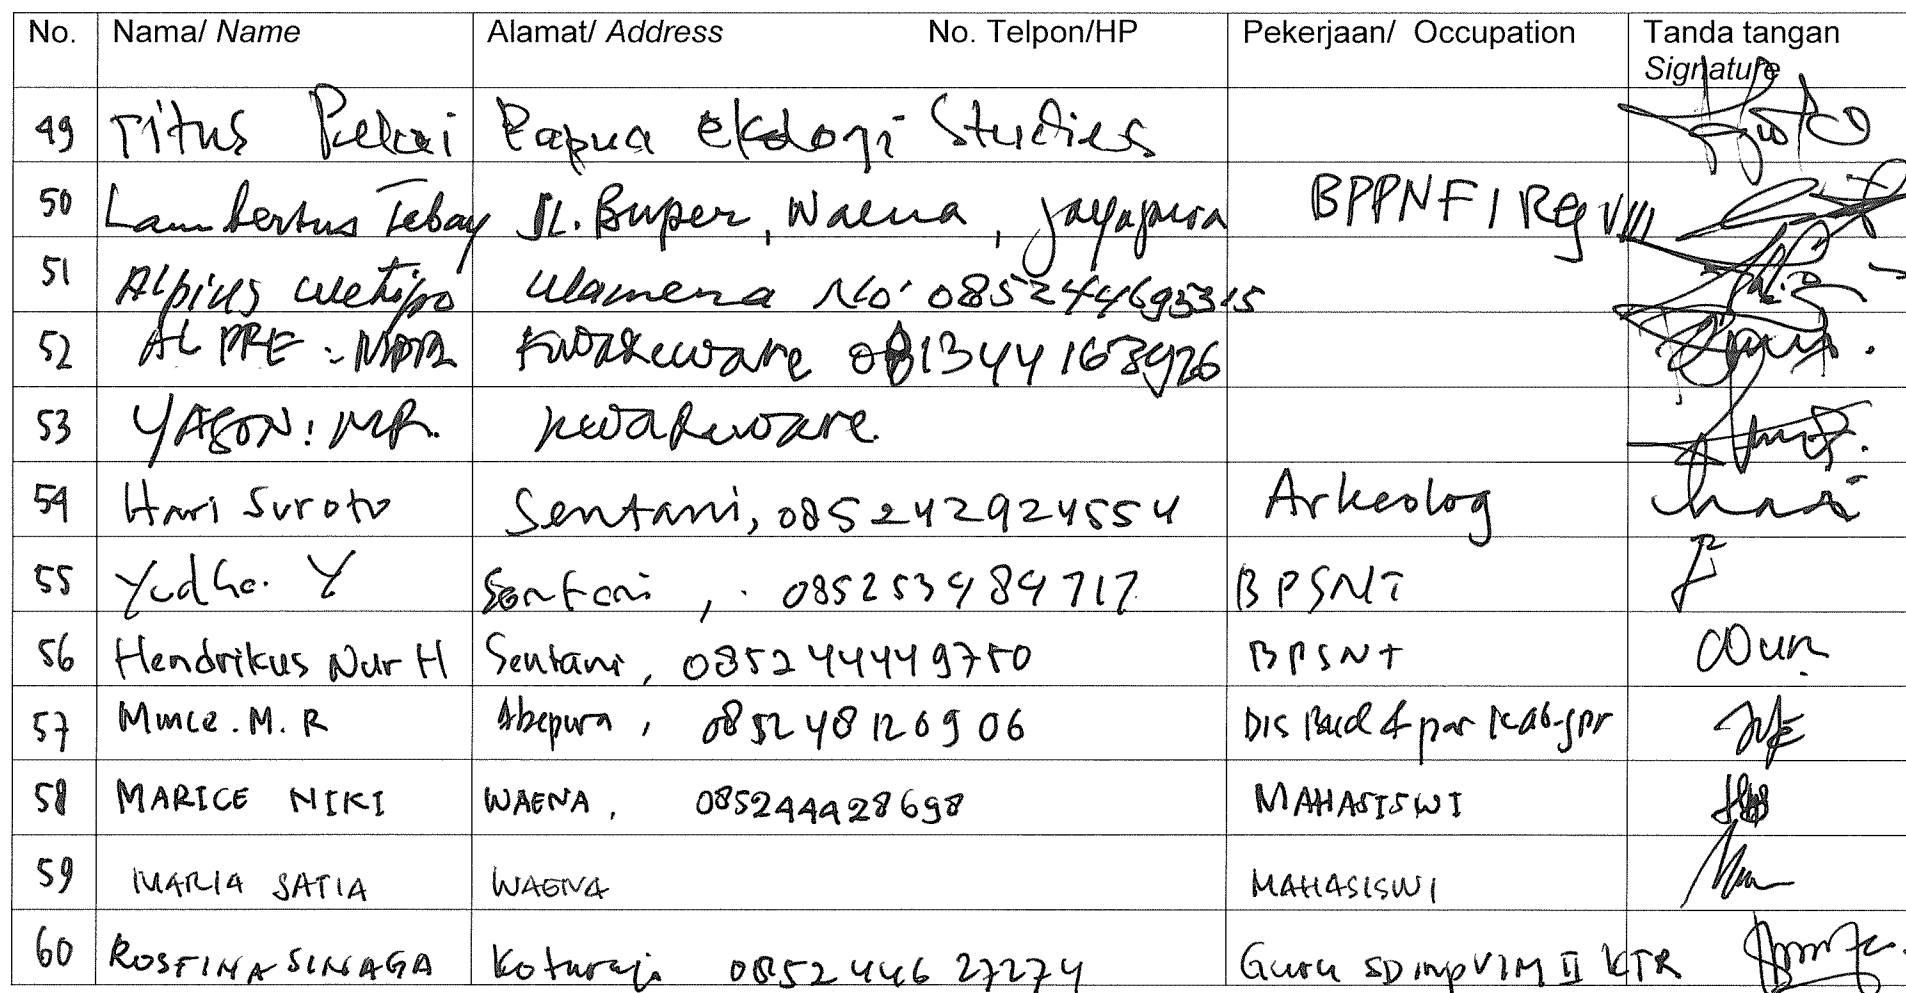 No. Nama/ Name Alamat/ Address No. Telpon/HP Pekerjaan/ Occupation Tanda tangan
Signature
49 Titus Pekei Papua Ekologi Studies
50 Lambertus Tebay JL. Buper, Waena, Jayapura BPPNFI Reg VIII
51 Alpius Wetipo Wamena No. 085244693315
52 AL PRE : MDR Kwakewore 081344163926
53 YASON: MR. Kwakewore.
54 Hari Suroto Sentani, 085242924554 Arkeolog
55 Yudha. Y Sentani, 085253484717 BPSNT
56 Hendrikus Nur H Sentani, 085244449750 BPSNT
57 Mince. M. R Abepura, 085248126906 Dis Bud & par Kab-Jpr
58 MARICE NIKI WAENA, 085244428698 MAHASISWI
59 MARIA SATIA WAENA MAHASISWI
60 ROSFINA SINAGA Koturaja 085244627274 Guru SD inp VIM II KTR